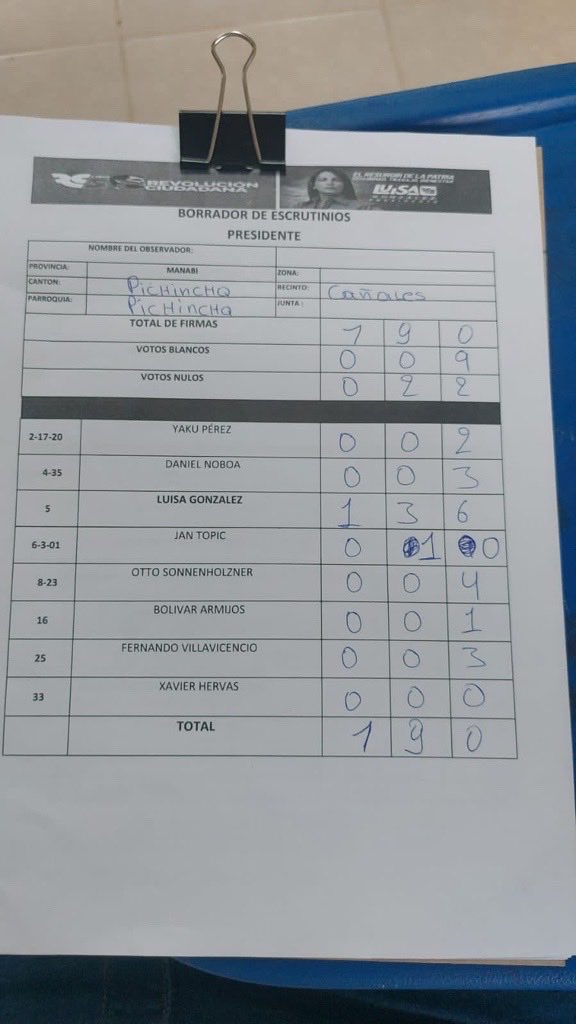 REVOLUCIÓN
CIUDADANA
EL RESURGIR DE LA PATRIA
LUISA
BORRADOR DE ESCRUTINIOS
PRESIDENTE
NOMBRE DEL OBSERVADOR:
PROVINCIA: MANABI ZONA:
CANTON: PICHINCHA RECINTO: Cañales
PARROQUIA: PICHINCHA JUNTA:
TOTAL DE FIRMAS 1 9 0
VOTOS BLANCOS 0 0 9
VOTOS NULOS 0 2 2
2-17-20 YAKU PÉREZ 0 0 2
4-35 DANIEL NOBOA 0 0 3
5 LUISA GONZALEZ 1 3 6
6-3-01 JAN TOPIC 0 1 0
8-23 OTTO SONNENHOLZNER 0 0 4
16 BOLIVAR ARMIJOS 0 0 1
25 FERNANDO VILLAVICENCIO 0 0 3
33 XAVIER HERVAS 0 0 0
TOTAL 1 9 0